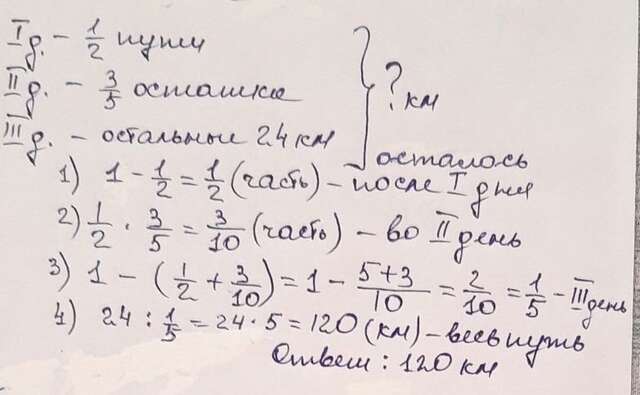 I д. - 1/2 пути
II д. - 3/5 остатка
III д. - остальные 24 км
? км
1) 1 - 1/2 = 1/2 (часть) - осталось после I дня
2) 1/2 · 3/5 = 3/10 (часть) - во II день
3) 1 - (1/2 + 3/10) = 1 - 5+3/10 = 2/10 = 1/5 - III день
4) 24 : 1/5 = 24 · 5 = 120 (км) - весь путь
Ответ: 120 км